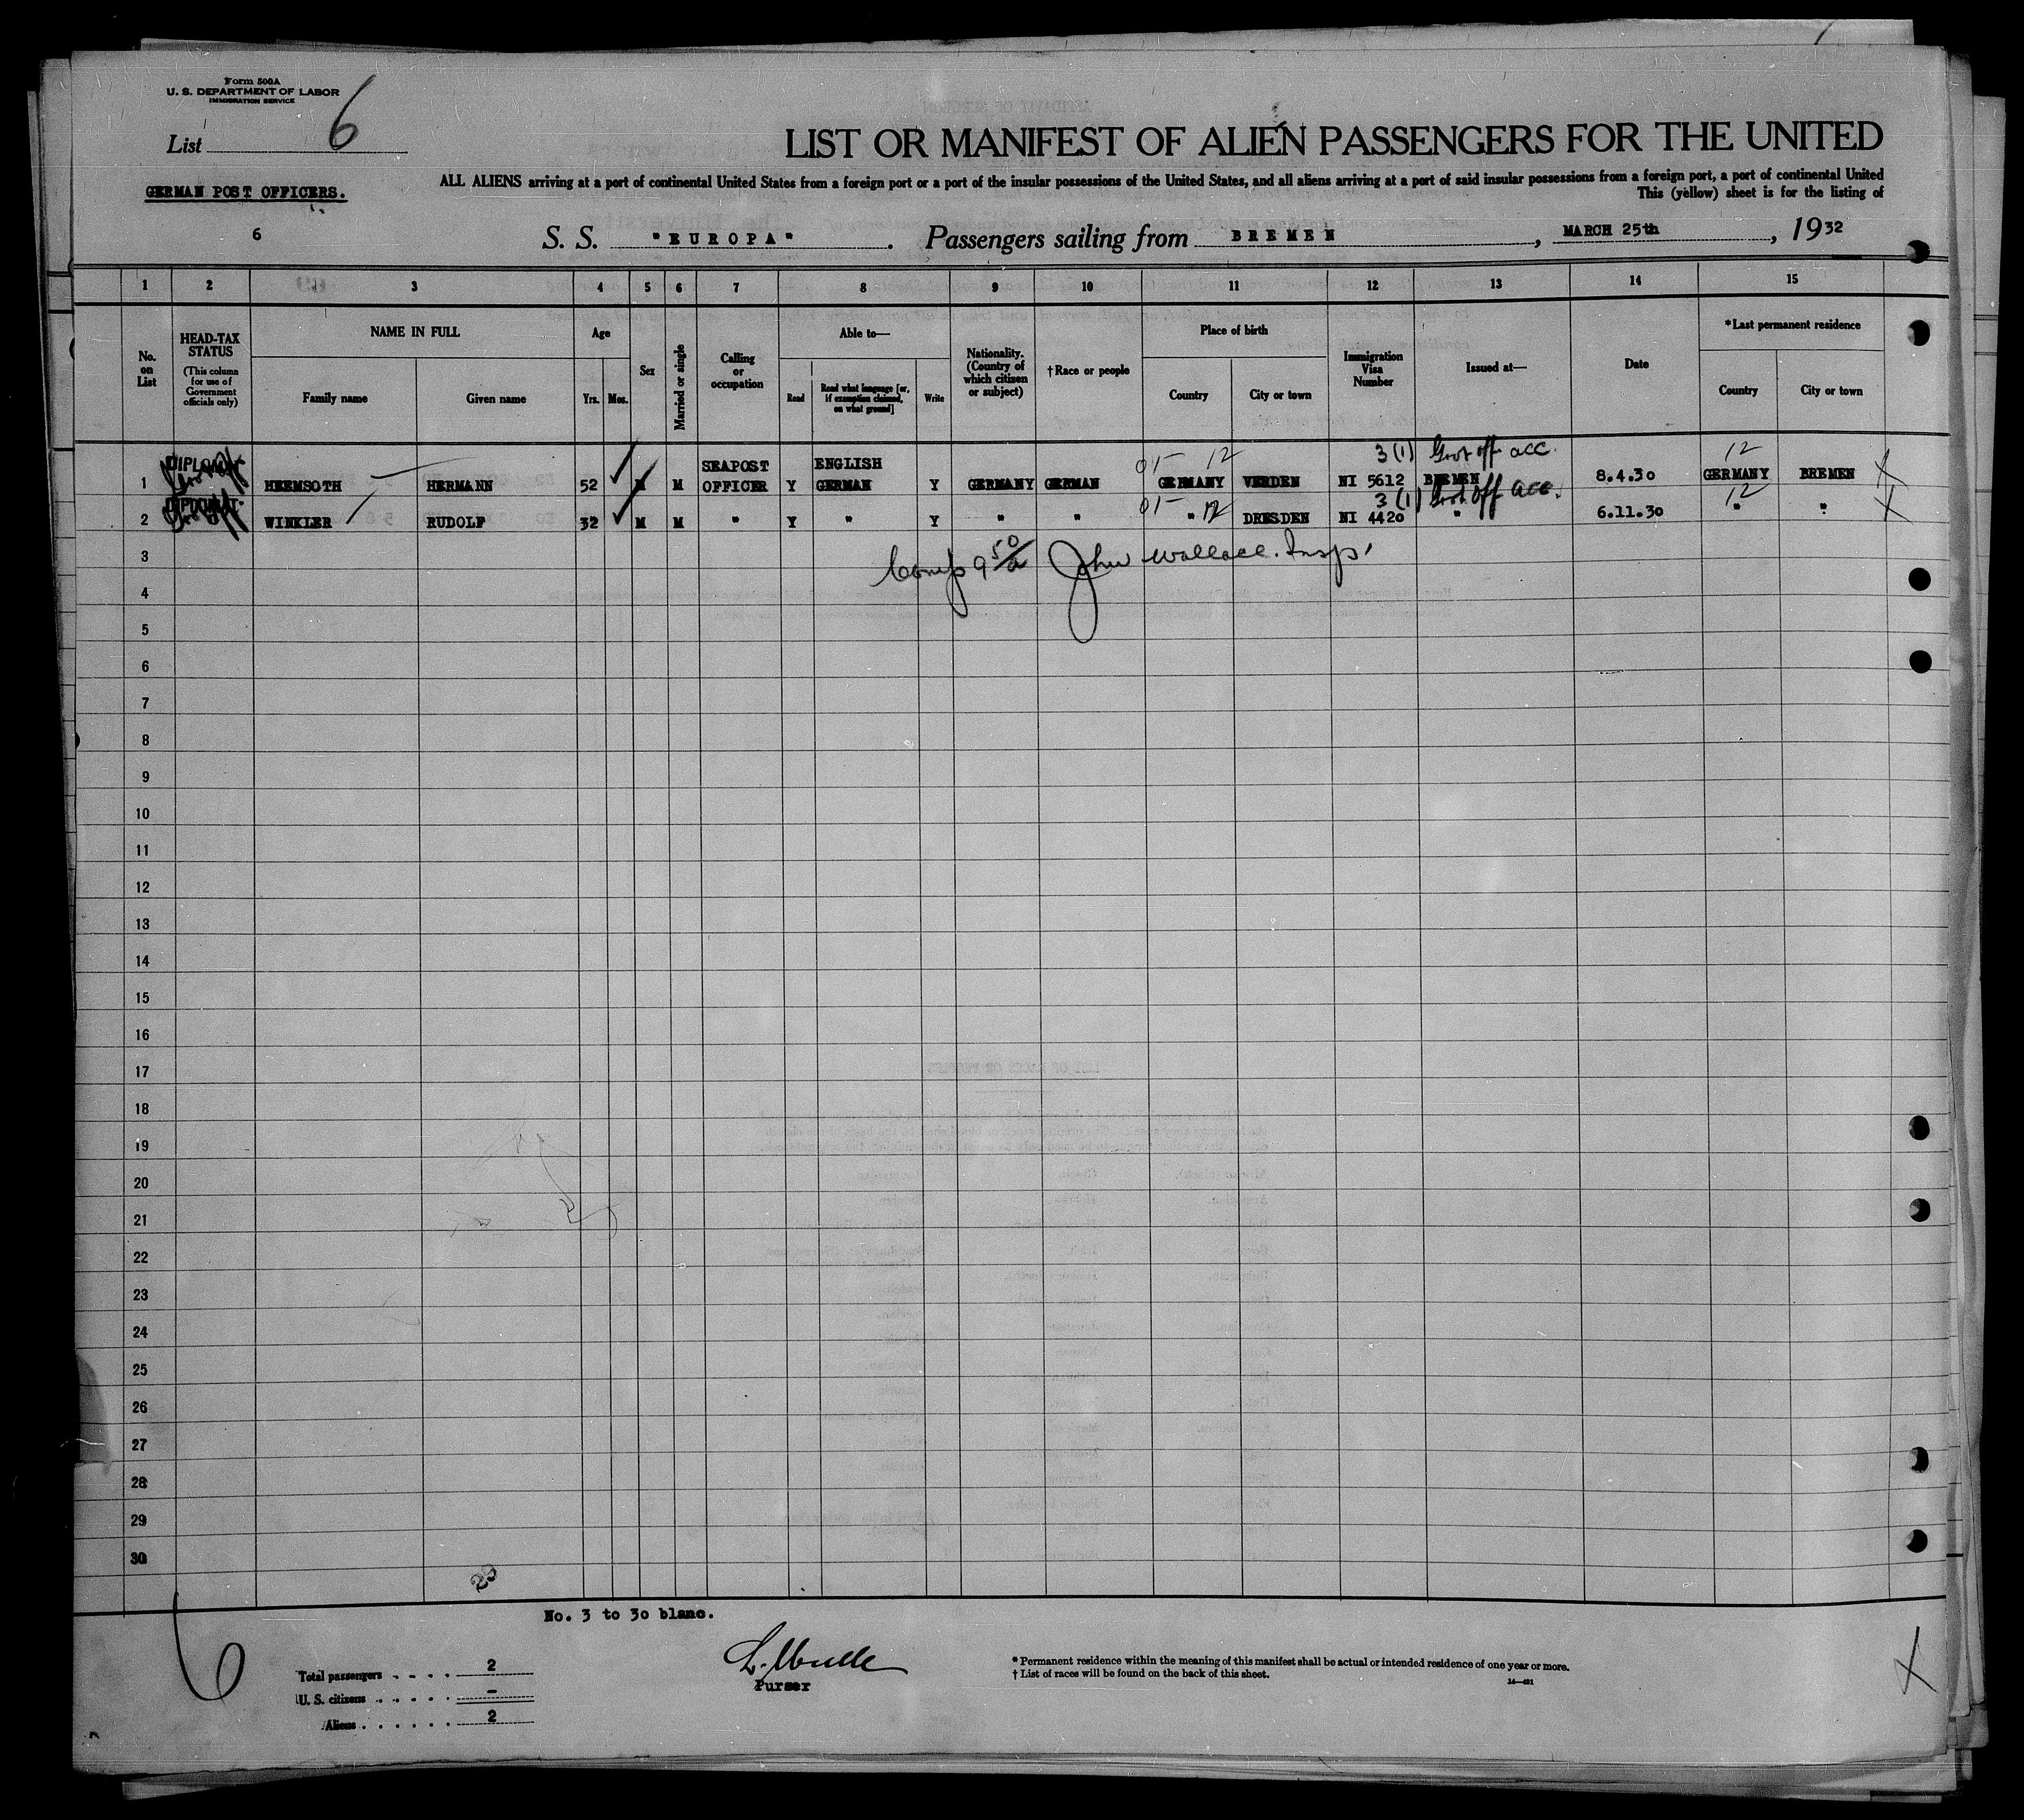 Form 500A
U. S. DEPARTMENT OF LABOR
IMMIGRATION SERVICE
List 6
LIST OR MANIFEST OF ALIEN PASSENGERS FOR THE UNITED
GERMAN POST OFFICERS.
ALL ALIENS arriving at a port of continental United States from a foreign port or a port of the insular possessions of the United States, and all aliens arriving at a port of said insular possessions from a foreign port, a port of continental United
This (yellow) sheet is for the listing of
6
S. S. "EUROPA". Passengers sailing from BREMEN, MARCH 25th, 1932
1 2 3 4 5 6 7 8 9 10 11 12 13 14 15
No. on List
HEAD-TAX STATUS
(This column for use of Government officials only)
NAME IN FULL
Family name Given name
Age
Yrs. Mos.
Sex
Married or single
Calling or occupation
Able to—
Read
Read what language [or, if exemption claimed, on what ground]
Write
Nationality. (Country of which citizen or subject)
† Race or people
Place of birth
Country City or town
Immigration Visa Number
Issued at—
Date
*Last permanent residence
Country City or town
3 (1) Govt off acc.
DIPLOMAT SEAPOST ENGLISH 01- 12 12
1 HEEMSOTH HERMANN 52 M M OFFICER Y GERMAN Y GERMANY GERMAN GERMANY VERDEN NI 5612 BREMEN 8.4.30 GERMANY BREMEN
DIPLOMAT 01- 12 3 (1) Govt off acc. 12
2 WINKLER RUDOLF 32 M M " Y " Y " " " DRESDEN NI 4420 " 6.11.30 " "
Comp 9 50/a John Wallace. Insp.
3
4
5
6
7
8
9
10
11
12
13
14
15
16
17
18
19
20
21
22
23
24
25
26
27
28
29
30
23
No. 3 to 30 blanc.
6
Total passengers . . . . 2
U. S. citizens . . . . . . -
Aliens . . . . . . 2
Purser
* Permanent residence within the meaning of this manifest shall be actual or intended residence of one year or more.
† List of races will be found on the back of this sheet.
X